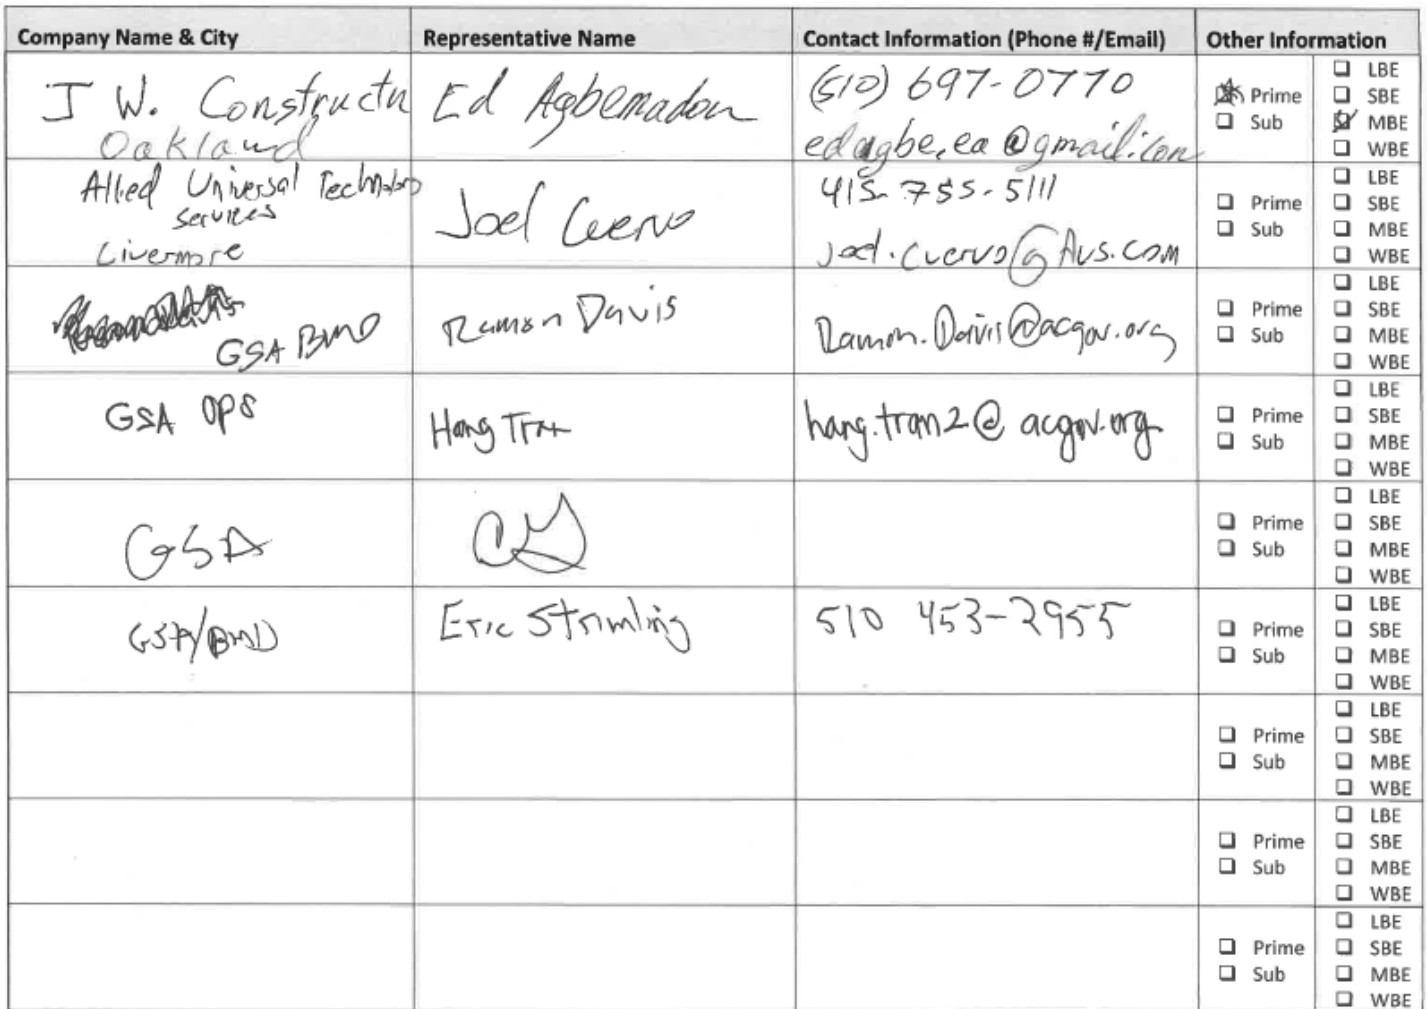 Company Name & City Representative Name Contact Information (Phone #/Email) Other Information
J W. Constructn Ed Agbemadon (510) 697-0770
Oakland edagbe.ea@gmail.com
Prime
Sub
LBE
SBE
MBE
WBE
Allied Universal Technology
services
Livermore
Joel Cuervo
415-755-5111
Joel.cuervo@Aus.com
Prime
Sub
LBE
SBE
MBE
WBE
GSA BMD
Ramon Davis
Ramon.Davis@acgov.org
Prime
Sub
LBE
SBE
MBE
WBE
GSA OPS
Hang Tran
hang.tran2@acgov.org
Prime
Sub
LBE
SBE
MBE
WBE
GSA
Prime
Sub
LBE
SBE
MBE
WBE
GSA/BMD
Eric Strimling
510 453-2955
Prime
Sub
LBE
SBE
MBE
WBE
Prime
Sub
LBE
SBE
MBE
WBE
Prime
Sub
LBE
SBE
MBE
WBE
Prime
Sub
LBE
SBE
MBE
WBE